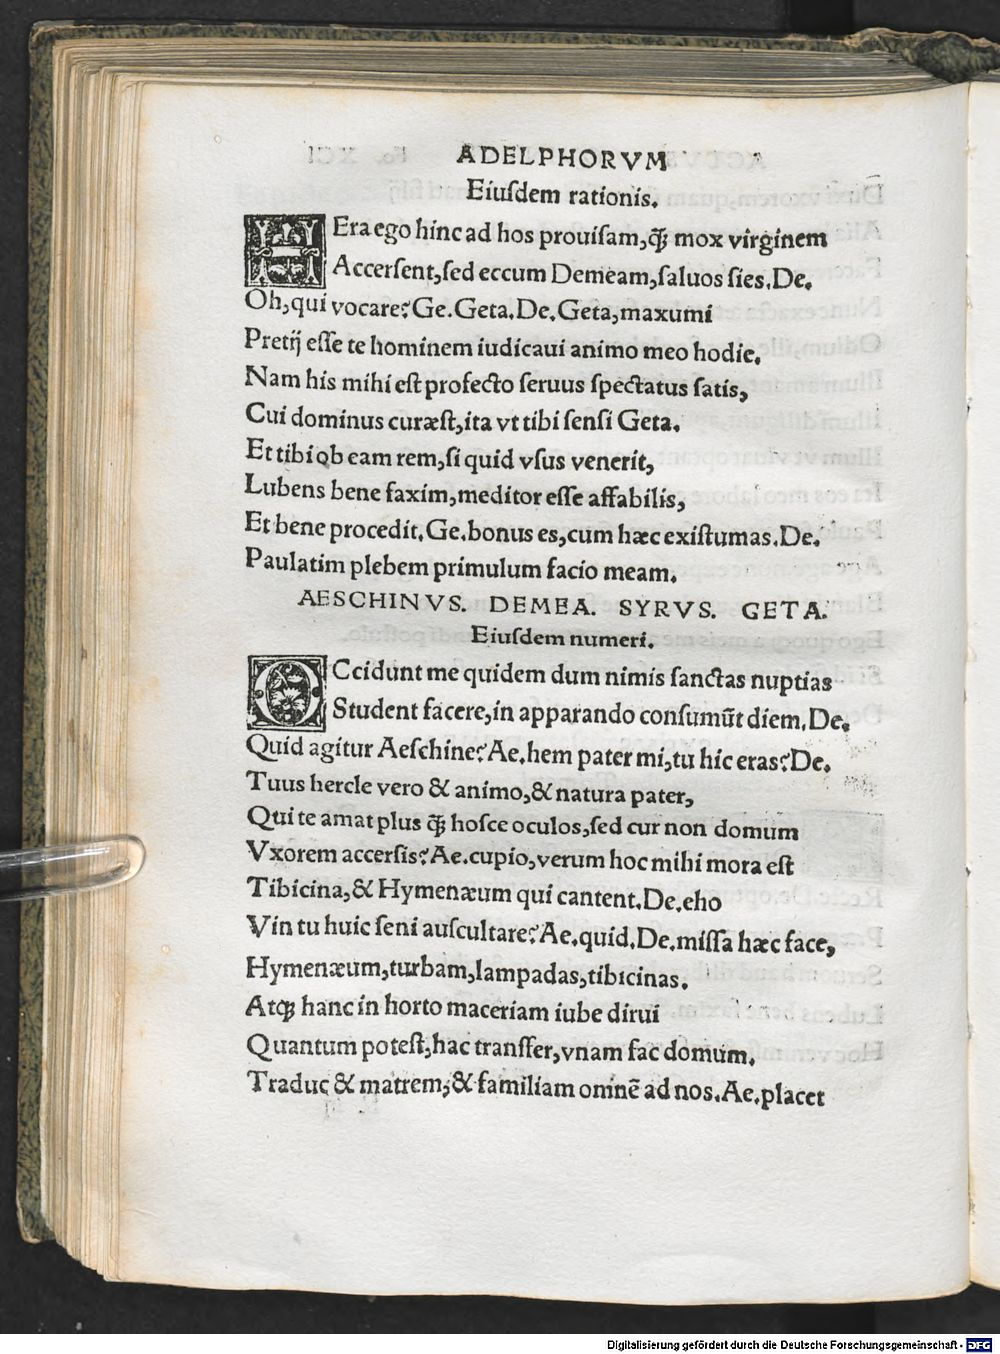 ADELPHORVM
Eiuſdem rationis.
HEra ego hinc ad hos prouiſam, ꝙ̃ mox virginem
Accerſent, ſed eccum Demeam, ſaluos ſies. De.
Oh, qui vocare? Ge. Geta. De. Geta, maxumi
Pretij eſſe te hominem iudicaui animo meo hodie.
Nam his mihi eſt profecto ſeruus ſpectatus ſatis,
Cui dominus curæſt, ita vt tibi ſenſi Geta.
Et tibi ob eam rem, ſi quid vſus venerit,
Lubens bene faxim, meditor eſſe affabilis,
Et bene procedit. Ge. bonus es, cum hæc exiſtumas. De.
Paulatim plebem primulum facio meam.
AESCHINVS. DEMEA. SYRVS. GETA.
Eiuſdem numeri.
OCcidunt me quidem dum nimis ſanctas nuptias
Student facere, in apparando conſumũt diem. De.
Quid agitur Aeſchine? Ae. hem pater mi, tu hic eras? De.
Tuus hercle vero & animo, & natura pater,
Qui te amat plus ꝙ̃ hoſce oculos, ſed cur non domum
Vxorem accerſis? Ae. cupio, verum hoc mihi mora eſt
Tibicina, & Hymenæum qui cantent. De. eho
Vin tu huic ſeni auſcultare? Ae. quid. De. miſſa hæc face,
Hymenæum, turbam, lampadas, tibicinas.
Atqꝫ hanc in horto maceriam iube dirui
Quantum poteſt, hac transſer, vnam fac domum.
Traduc & matrem, & familiam omnẽ ad nos. Ae. placet
Digitalisierung gefördert durch die Deutsche Forschungsgemeinschaft - DFG